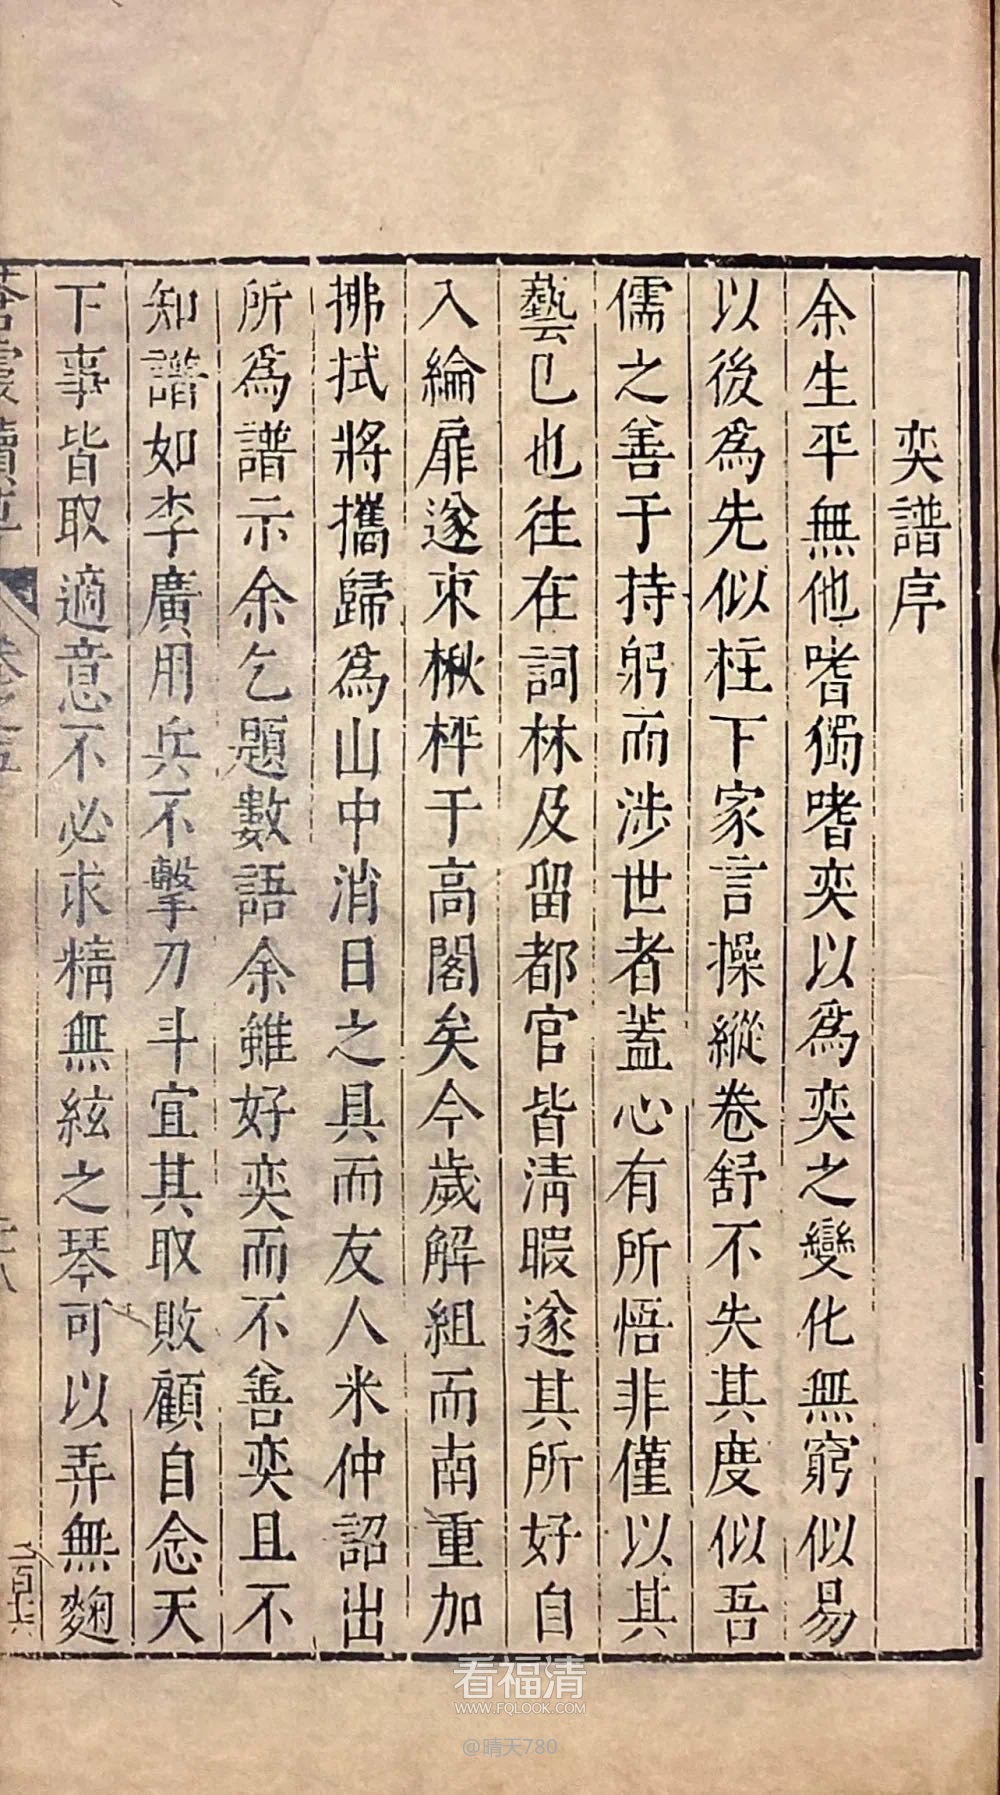 奕譜序
余生平無他嗜獨嗜奕以爲奕之變化無窮似易
以後爲先似柱下家言操縱卷舒不失其度似吾
儒之善于持躬而涉世者蓋心有所悟非僅以其
藝已也往在詞林及留都官皆淸暇遂其所好自
入綸扉遂束楸枰于高閣矣今歲解組而南重加
拂拭將攜歸爲山中消日之具而友人米仲詔出
所爲譜示余乞題數語余雖好奕而不善奕且不
知譜如李廣用兵不擊刀斗宜其取敗顧自念天
下事皆取適意不必求精無絃之琴可以弄無麴
蒼霞續草
卷之五
看福清
WWW.FQLOOK.COM
@晴天780